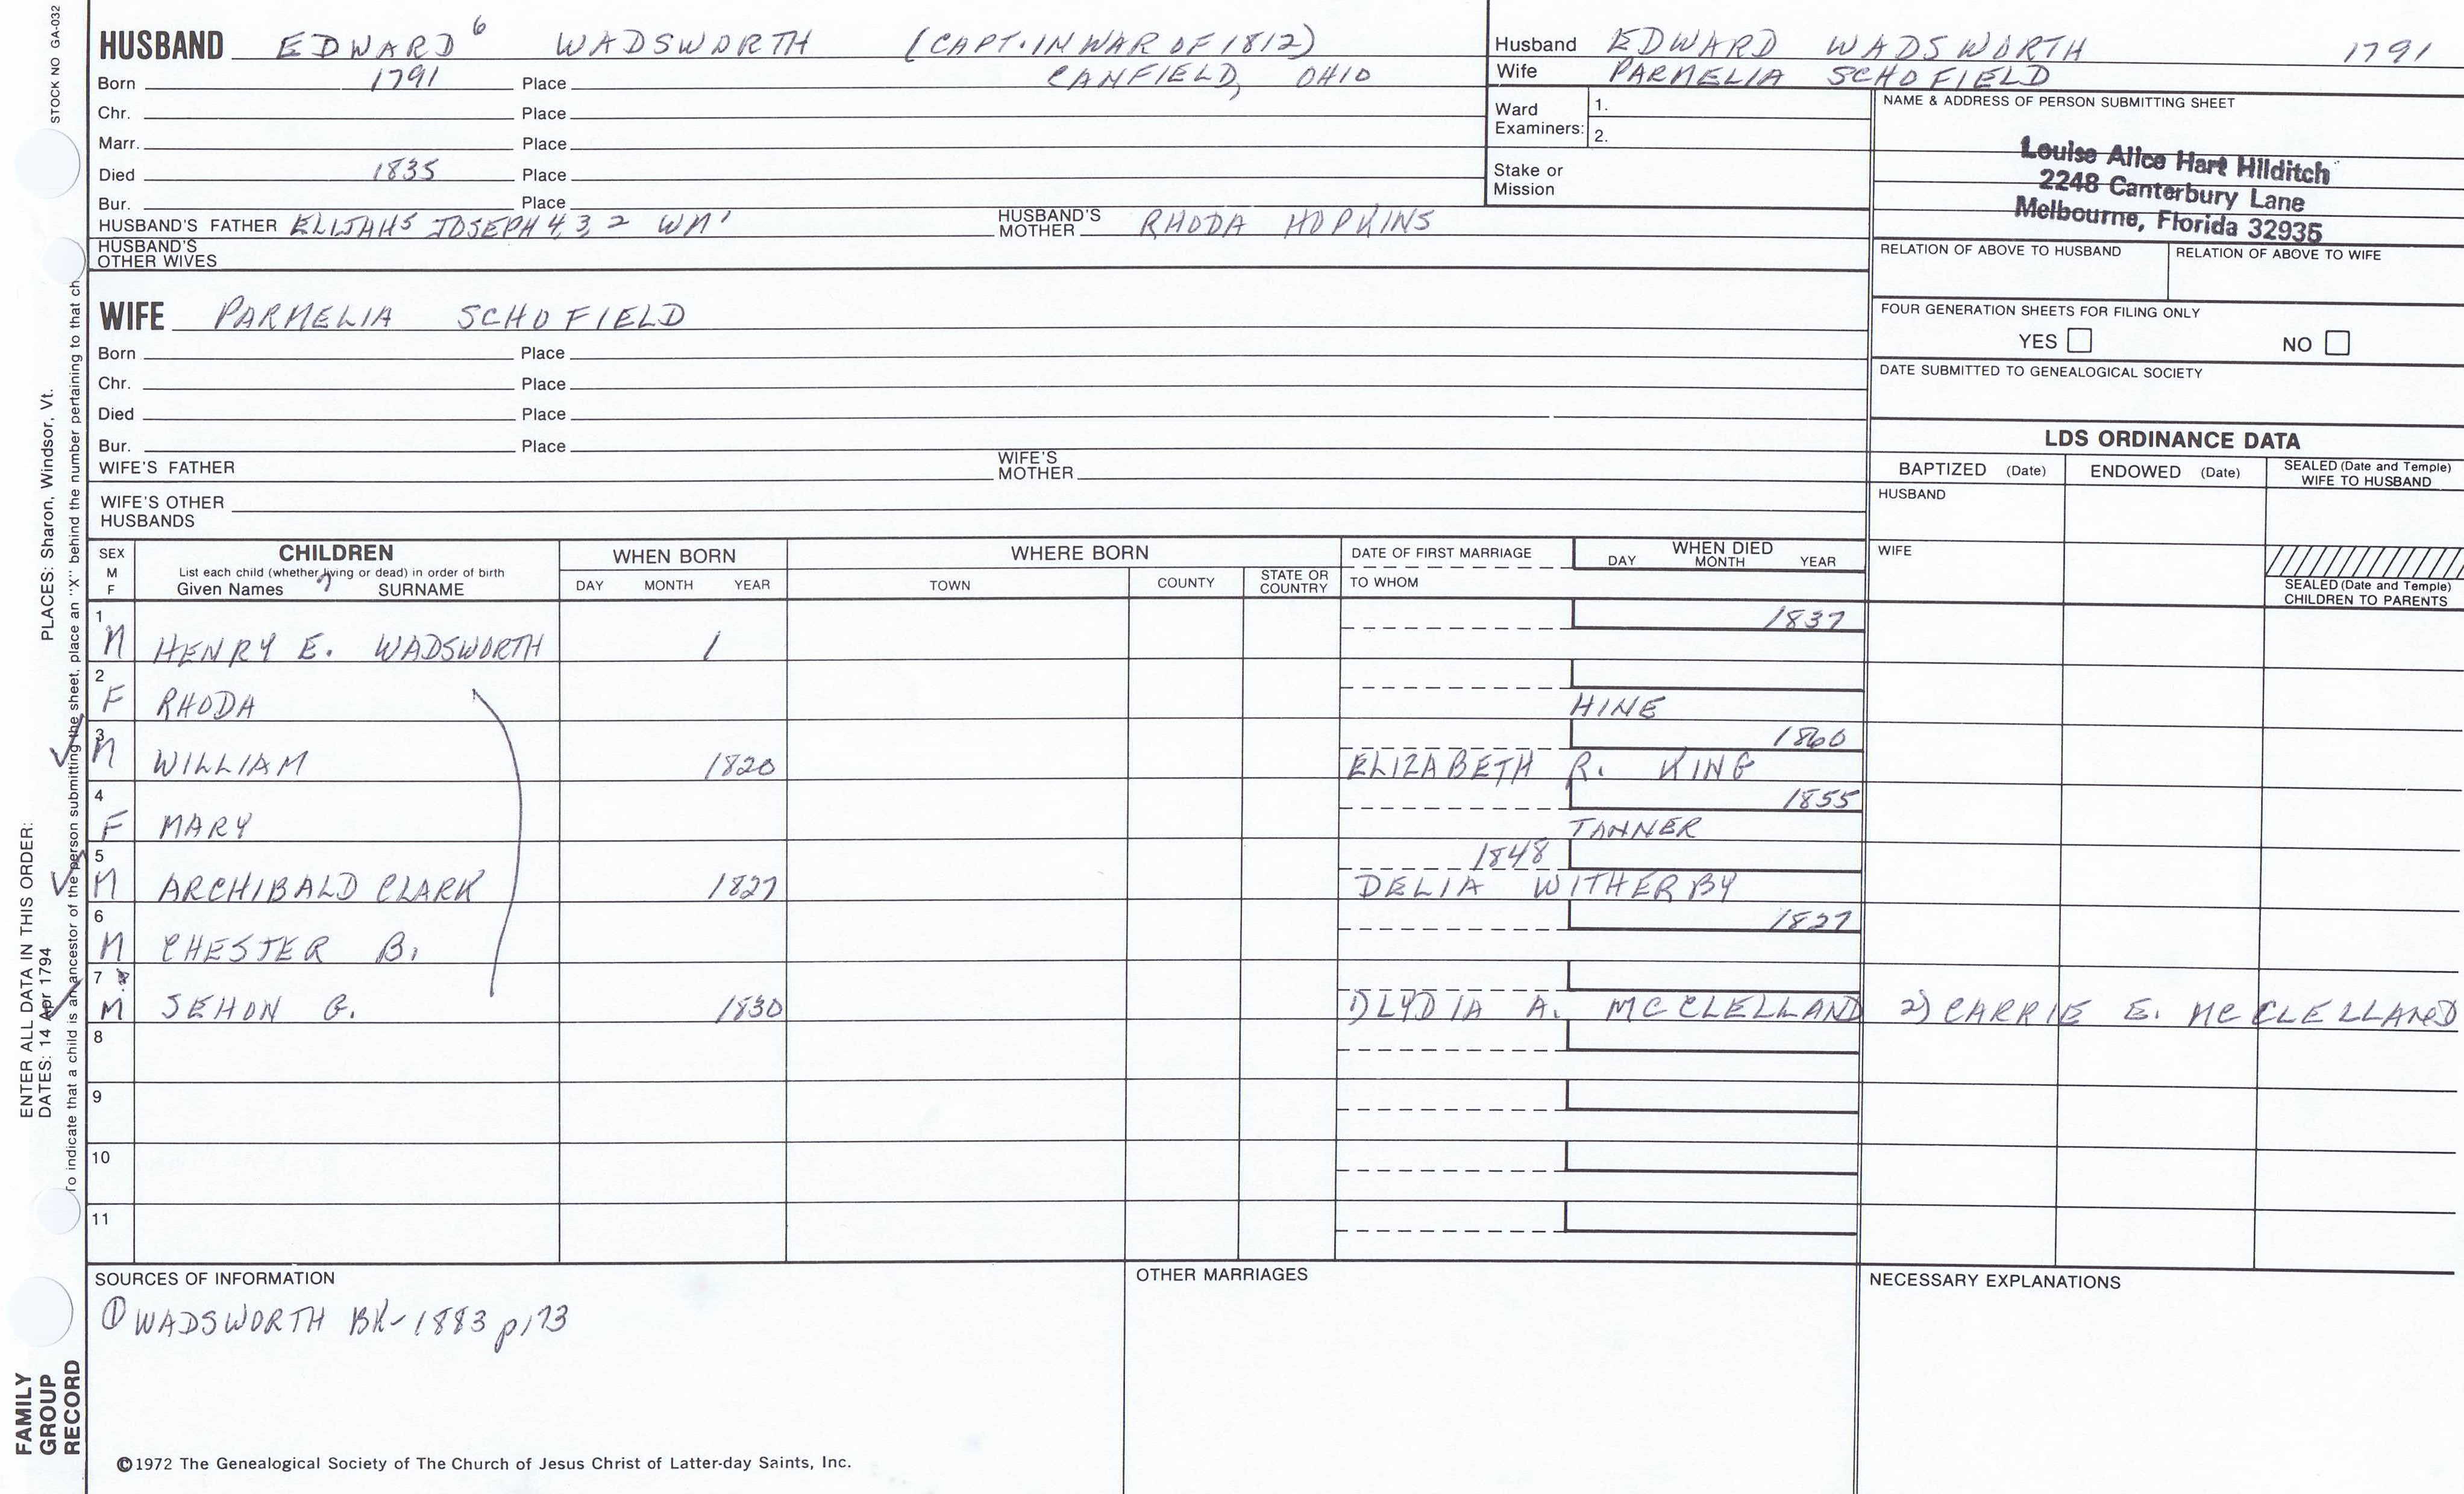 STOCK NO GA-032
HUSBAND EDWARD 6 WADSWORTH (CAPT. IN WAR OF 1812)
Born 1791 Place CANFIELD, OHIO
Chr. Place
Marr. Place
Died 1835 Place
Bur. Place
HUSBAND'S FATHER ELIJAH5 JOSEPH 4,3,2 WM1 HUSBAND'S MOTHER RHODA HOPKINS
HUSBAND'S OTHER WIVES
Husband EDWARD WADSWORTH 1791
Wife PARMELIA SCHOFIELD
Ward Examiners: 1.
2.
Stake or Mission
NAME & ADDRESS OF PERSON SUBMITTING SHEET
Louise Alice Hart Hilditch
2248 Canterbury Lane
Melbourne, Florida 32935
RELATION OF ABOVE TO HUSBAND RELATION OF ABOVE TO WIFE
FOUR GENERATION SHEETS FOR FILING ONLY
YES NO
DATE SUBMITTED TO GENEALOGICAL SOCIETY
WIFE PARMELIA SCHOFIELD
Born Place
Chr. Place
Died Place
Bur. Place
WIFE'S FATHER WIFE'S MOTHER
WIFE'S OTHER HUSBANDS
LDS ORDINANCE DATA
BAPTIZED (Date) ENDOWED (Date) SEALED (Date and Temple) WIFE TO HUSBAND
HUSBAND
WIFE
SEALED (Date and Temple) CHILDREN TO PARENTS
SEX M F CHILDREN WHEN BORN WHERE BORN DATE OF FIRST MARRIAGE WHEN DIED
List each child (whether living or dead) in order of birth
Given Names SURNAME DAY MONTH YEAR TOWN COUNTY STATE OR COUNTRY TO WHOM DAY MONTH YEAR
1 1837
M HENRY E. WADSWORTH 1
2
F RHODA HINE
3 1860
M WILLIAM 1820 ELIZABETH R. KING
4 1855
F MARY TANNER
5 1848
M ARCHIBALD CLARK 1827 DELIA WITHERBY
6 1827
M CHESTER B.
7
M SEHON G. 1830 1) LYDIA A. MCCLELLAND 2) CARRIE E. MCCLELLAND
8
9
10
11
SOURCES OF INFORMATION OTHER MARRIAGES NECESSARY EXPLANATIONS
① WADSWORTH BK-1883 p173
©1972 The Genealogical Society of The Church of Jesus Christ of Latter-day Saints, Inc.
FAMILY GROUP RECORD
ENTER ALL DATA IN THIS ORDER:
DATES: 14 Apr 1794 PLACES: Sharon, Windsor, Vt.
To indicate that a child is an ancestor of the person submitting the sheet, place an "X" behind the number pertaining to that ch